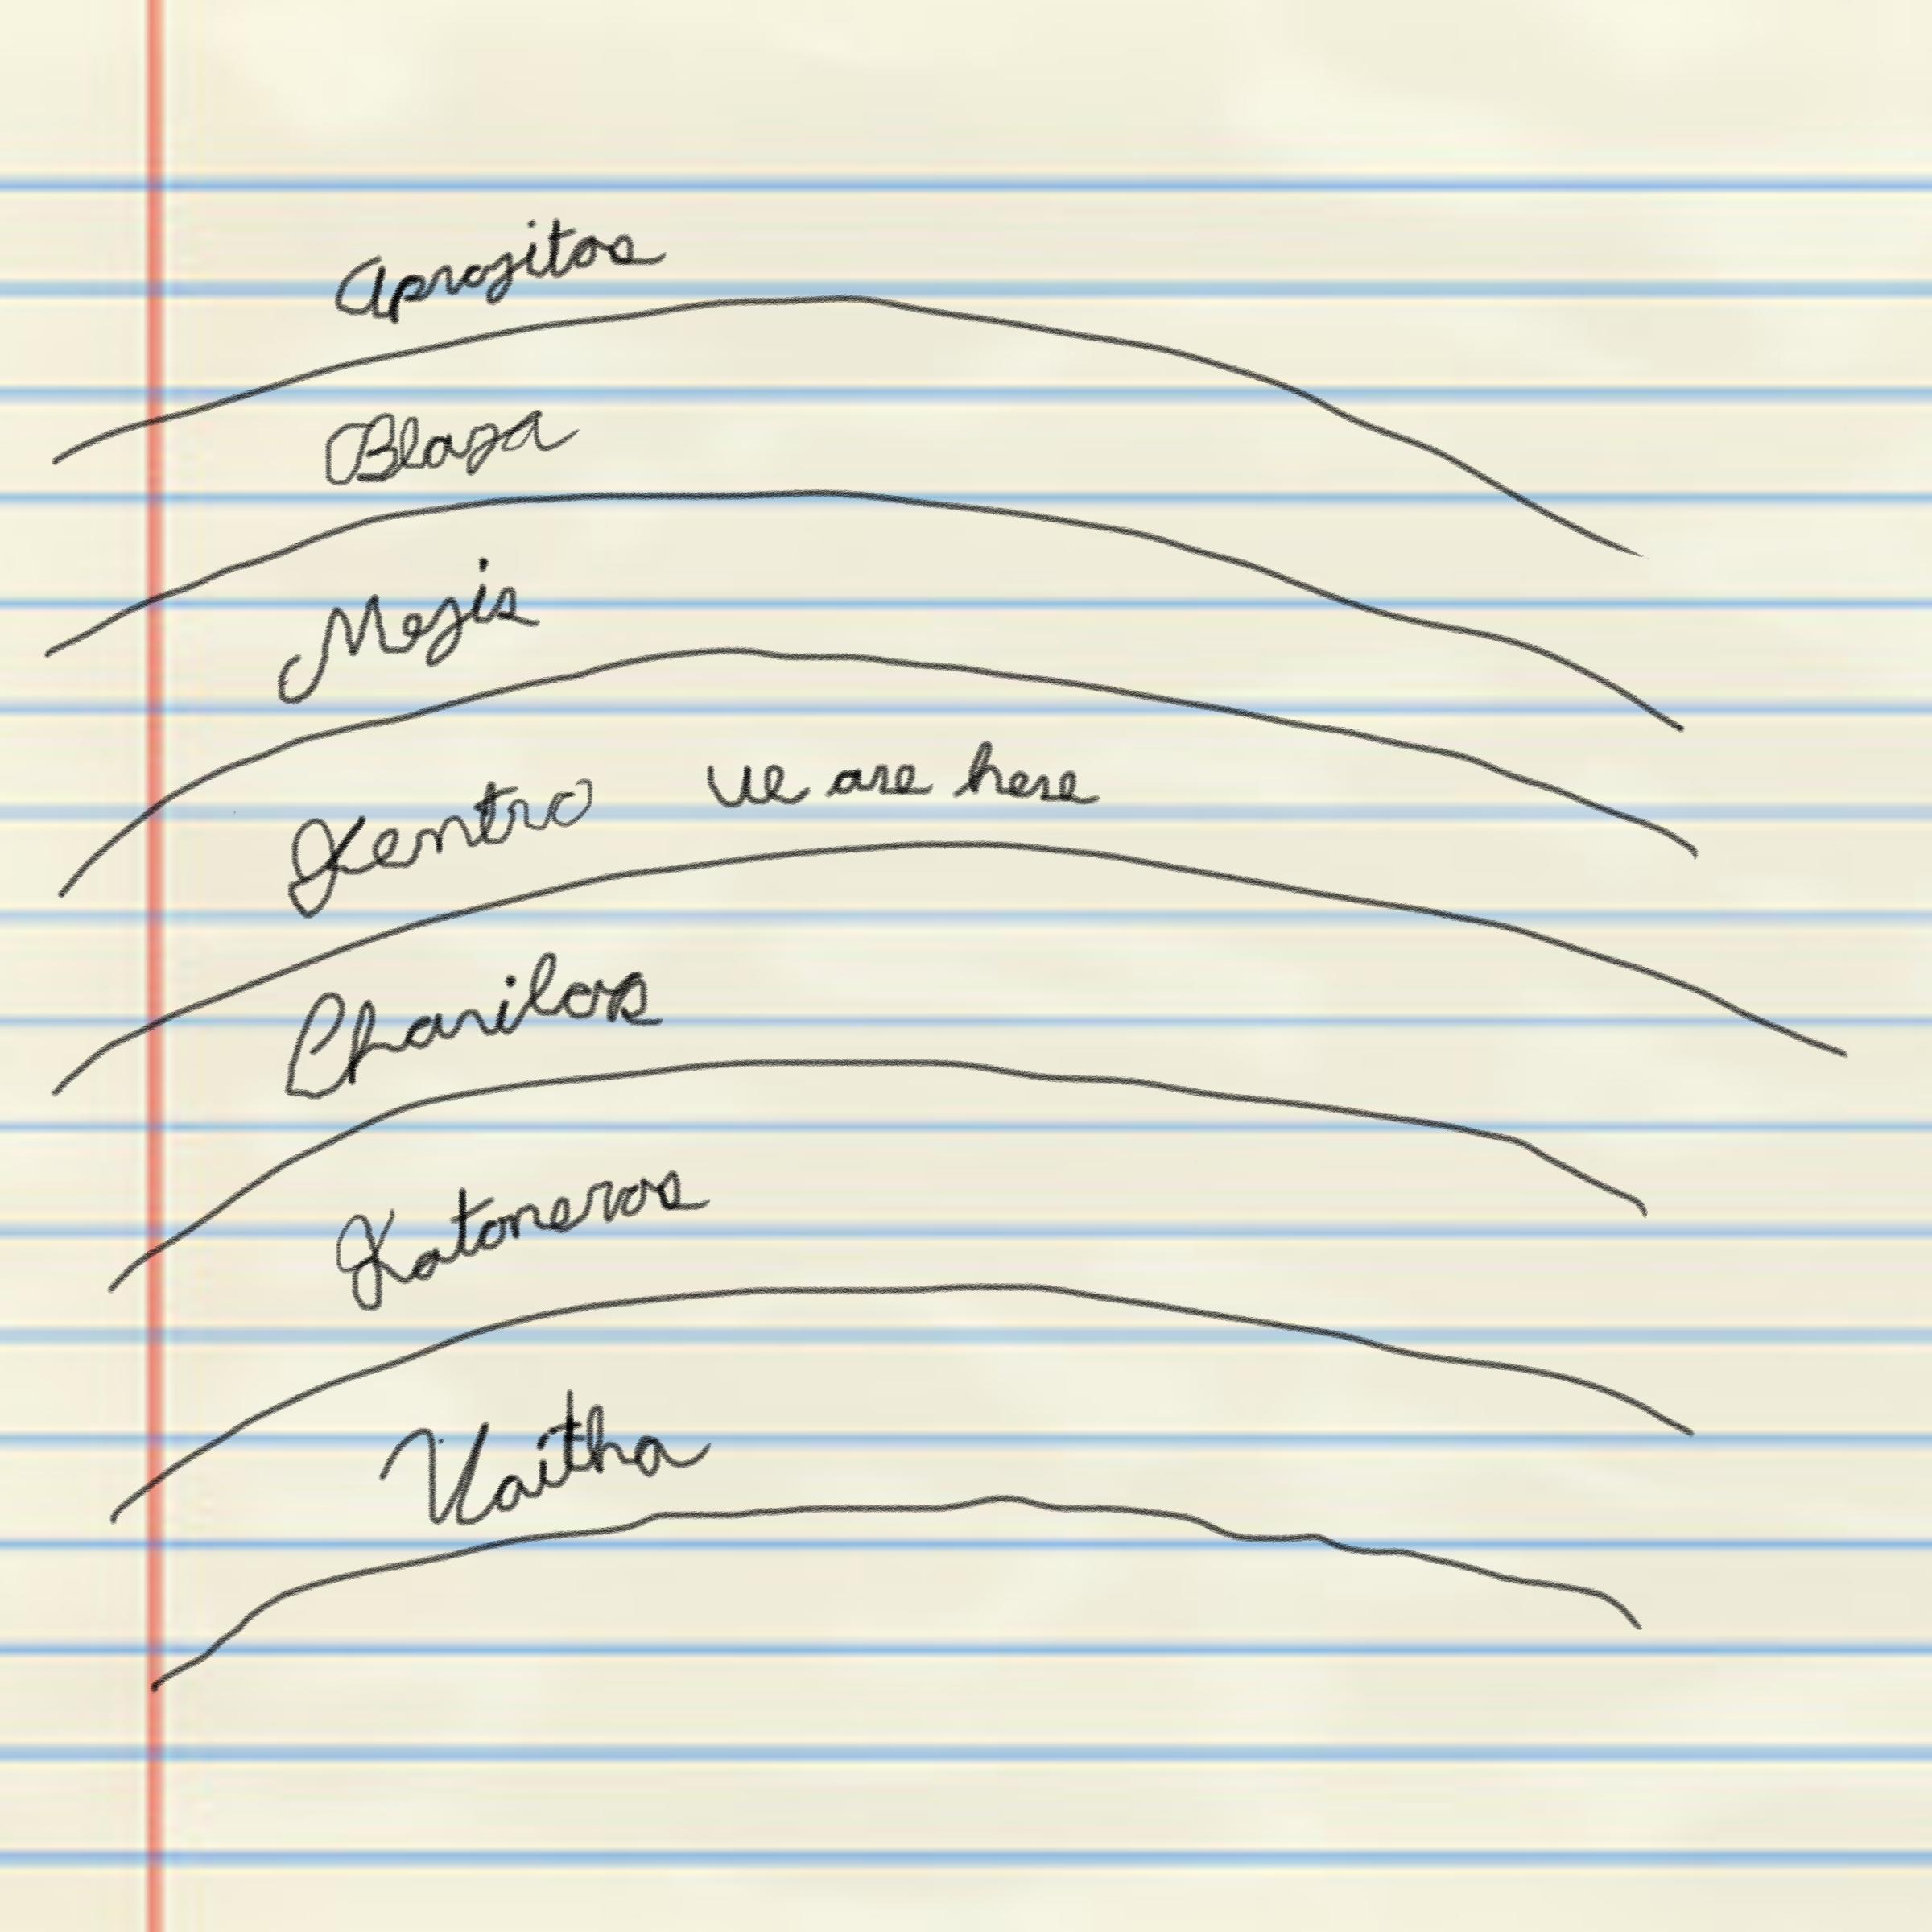 Aprojitos
Blaza
Mezis
Kentro we are here
Charilos
Katoneros
Vaitha